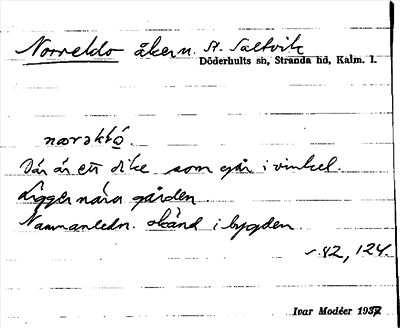 Norreldo åkern. St. Saltvik
Döderhults sn, Stranda hd, Kalm. l.
Där är ett dike som går i vinkel.
Ligger nära gården.
Namnanledn. okänd i bygden.
s. 42, 124.
Ivar Modéer 1937